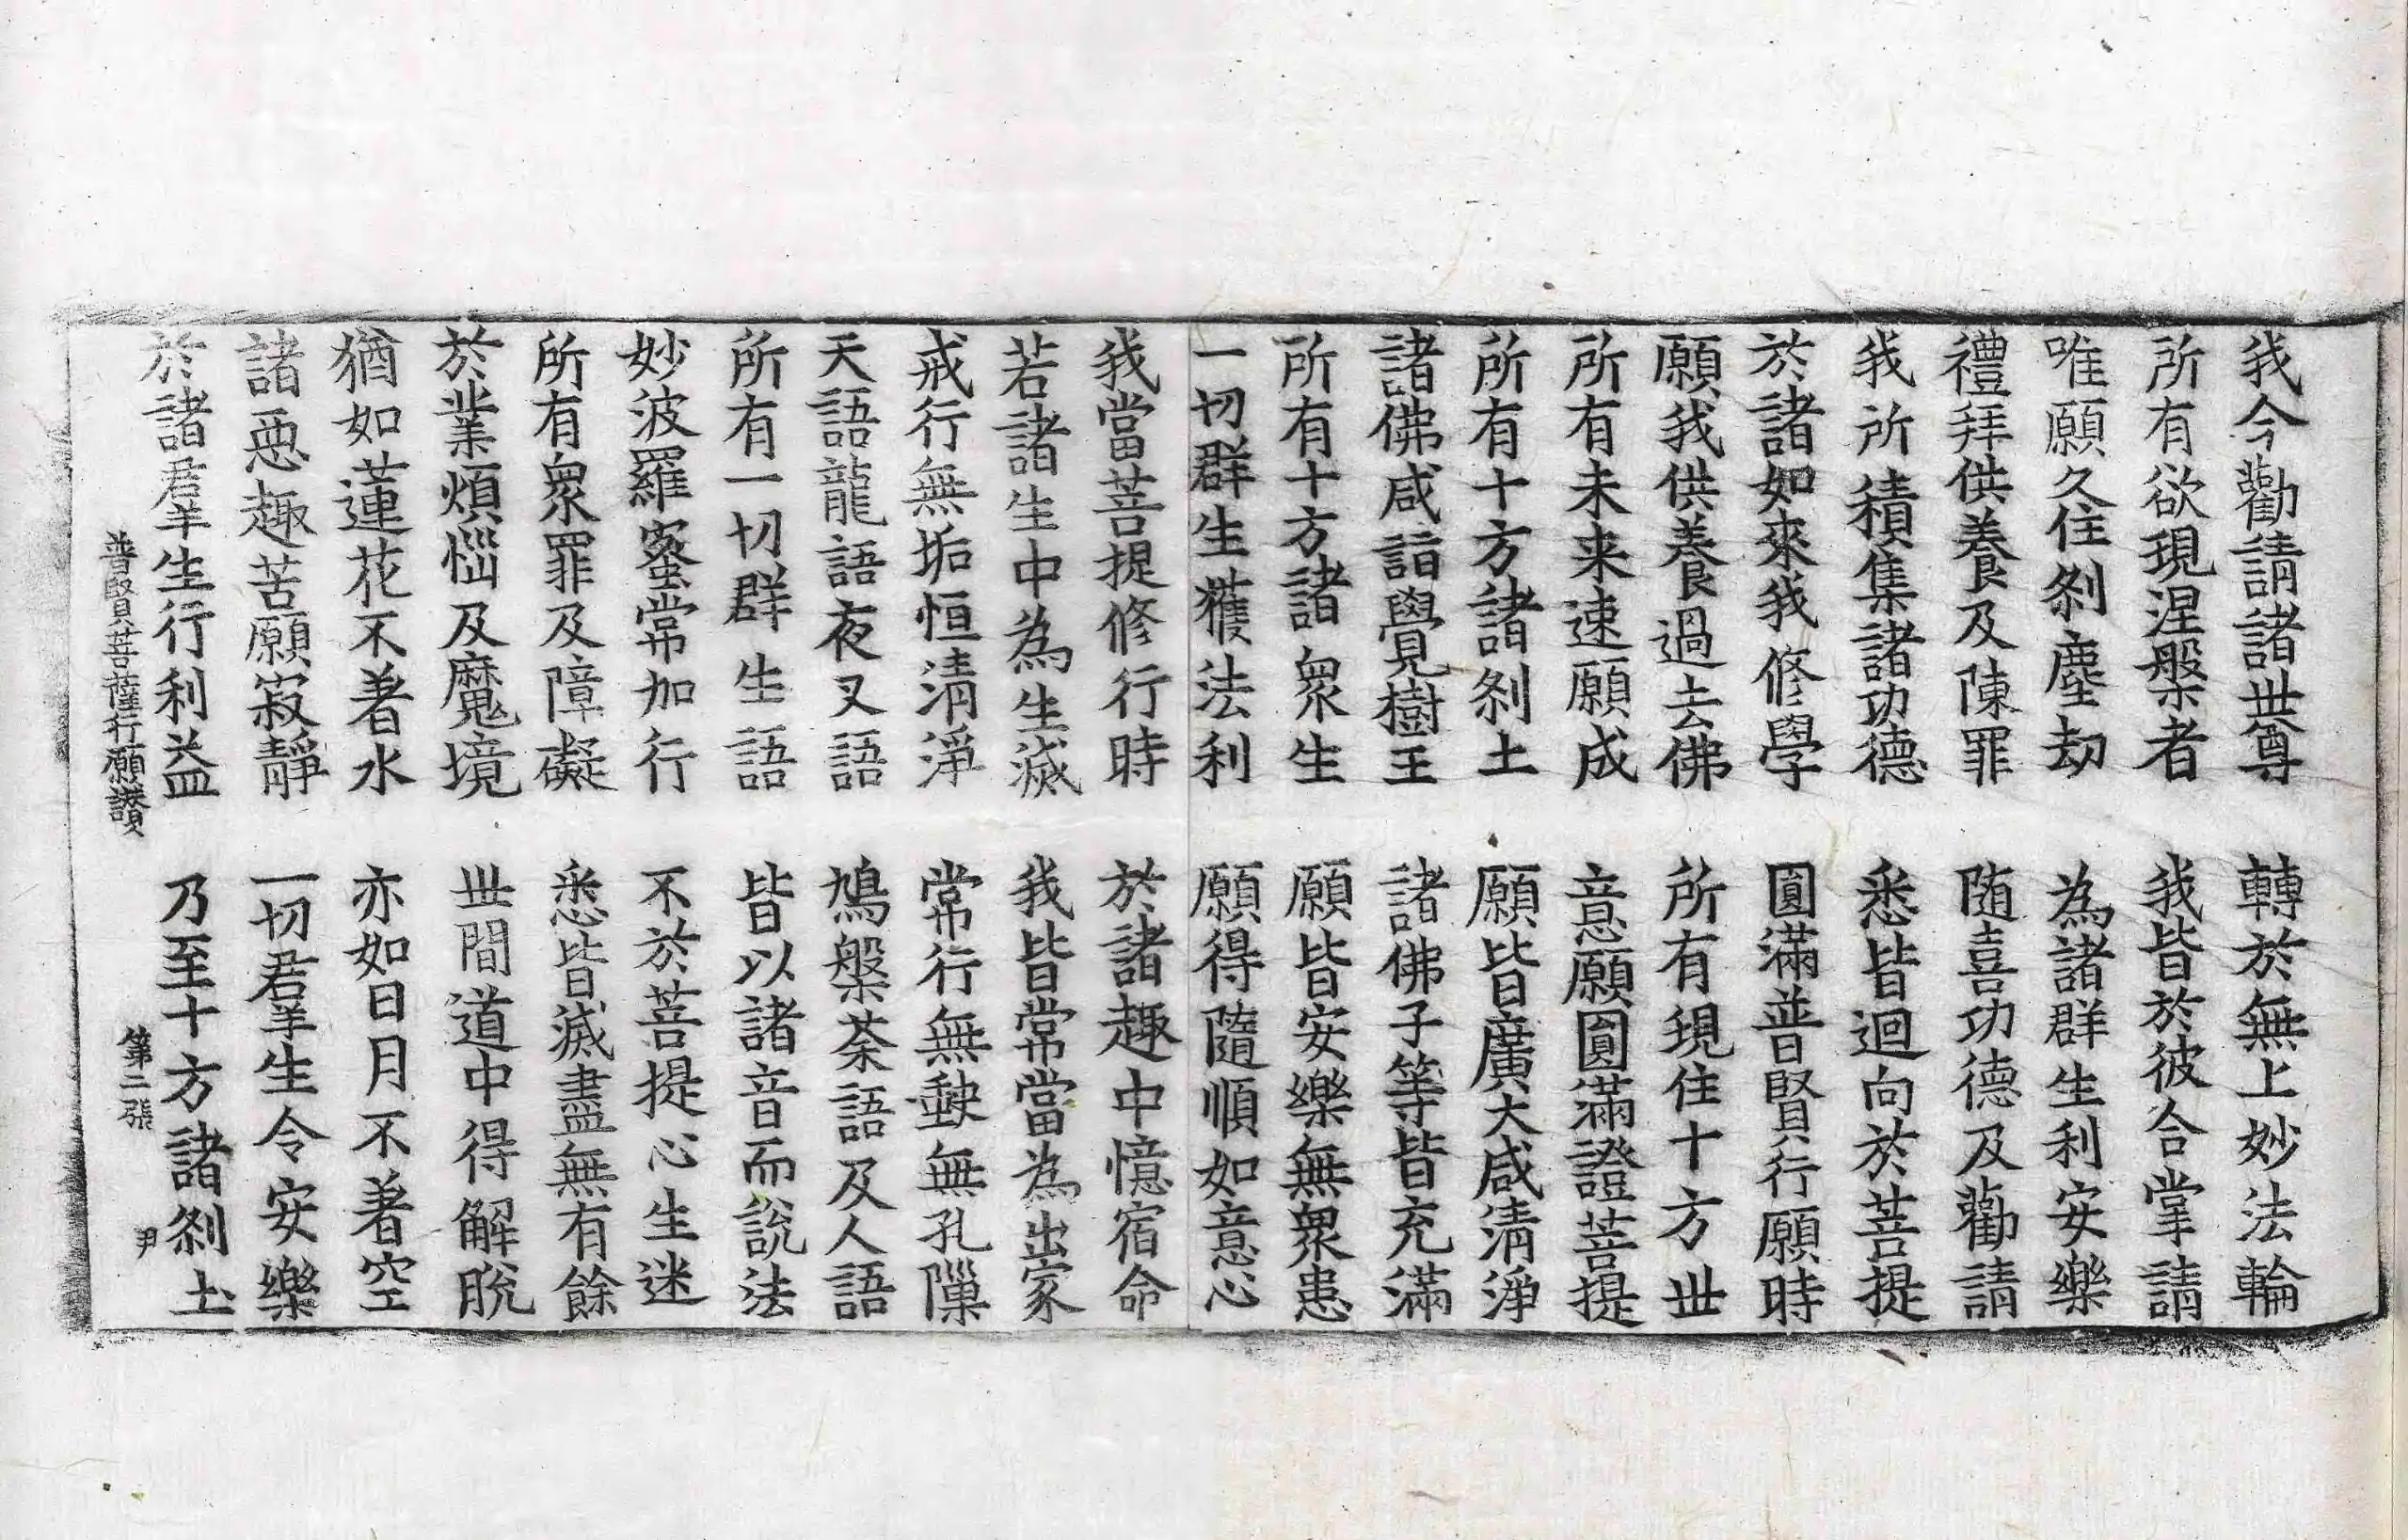 我今勸請諸世尊 轉於無上妙法輪
所有欲現涅槃者 我皆於彼合掌請
唯願久住刹塵劫 為諸群生利安樂
禮拜供養及陳罪 随喜功德及勸請
我所積集諸功德 悉皆迴向於菩提
於諸如來我修學 圓滿普賢行願時
願我供養過去佛 所有現住十方世
所有未来速願成 意願圓滿證菩提
所有十方諸刹土 願皆廣大咸清淨
諸佛咸詣覺樹王 諸佛子等皆充滿
所有十方諸衆生 願皆安樂無衆患
一切群生獲法利 願得隨順如意心
我當菩提修行時 於諸趣中憶宿命
若諸生中為生滅 我皆常當為出家
戒行無垢恒清淨 常行無缺無孔隟
天語龍語夜叉語 鳩槃荼語及人語
所有一切群生語 皆以諸音而說法
妙波羅蜜常加行 不於菩提心生迷
所有衆罪及障礙 悉皆滅盡無有餘
於業煩惱及魔境 世間道中得解脫
猶如蓮花不著水 亦如日月不著空
諸惡趣苦願寂靜 一切羣生令安樂
於諸羣生行利益 乃至十方諸刹土
普賢菩薩行願讚 第二張 尹